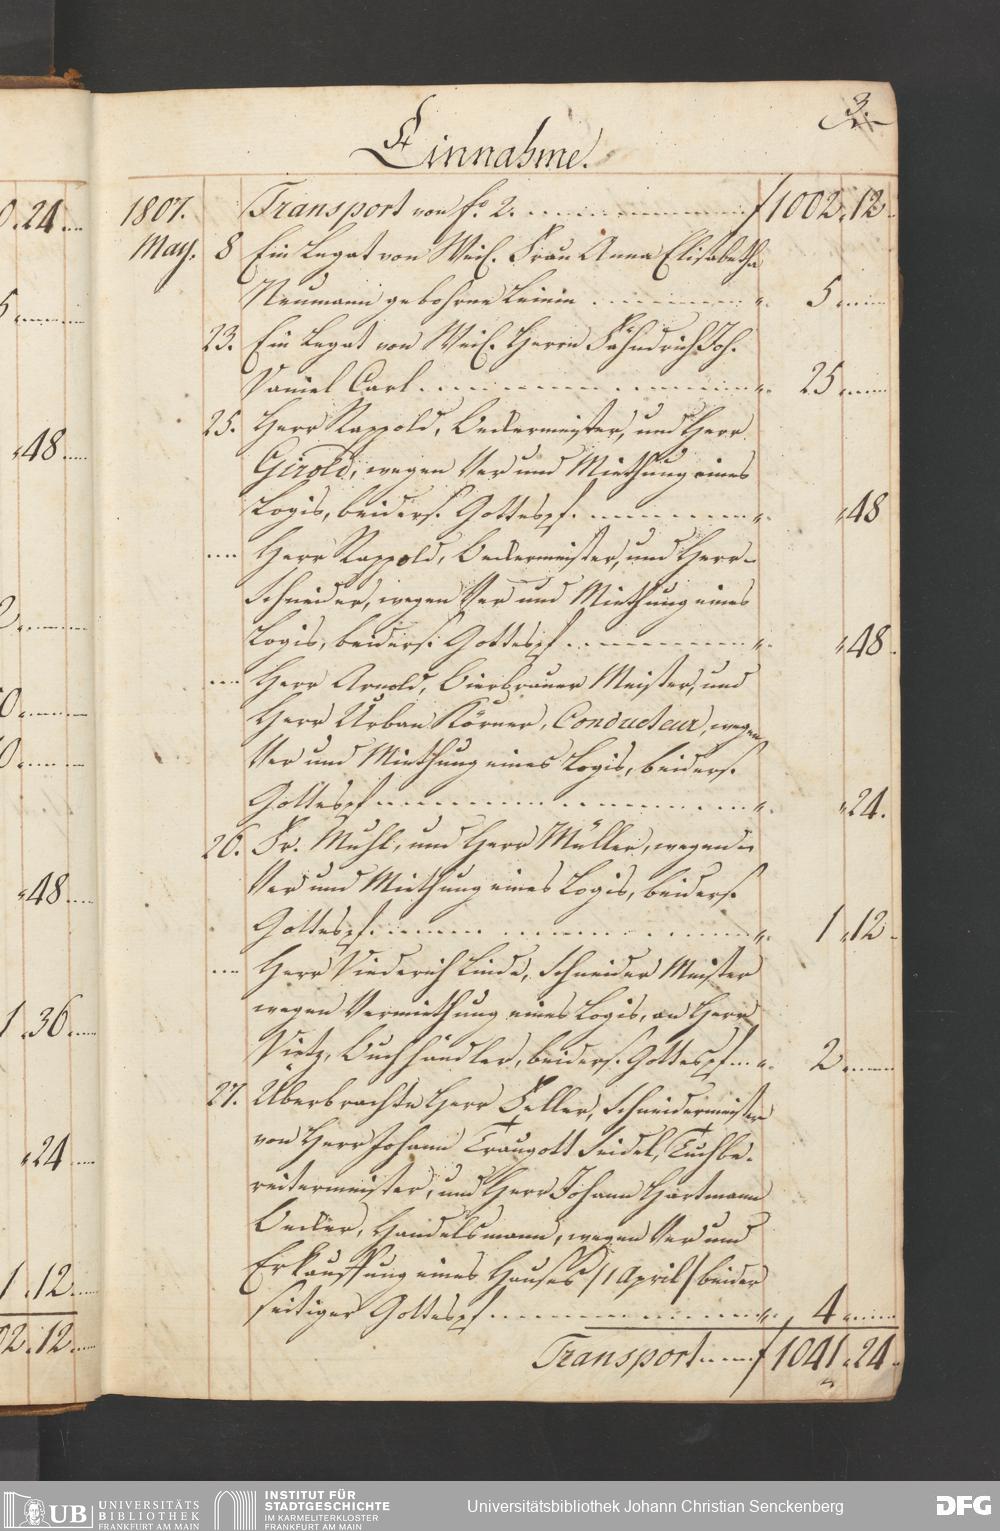 3.
Einnahme.
1807. Transport von fo. 2. f 1002.12
May. 8 Ein Legat von Weil. Frau Anna Elisabetha
Neumann gebohrne Leinin " 5
23. Ein Legat von Weil. Herrn Fähndrich Joh.
Daniel Carl " 25
25. Herr Rappold, Beckermeister, und Herr
Girold, wegen Ver und Miethung eines
Logis, beiders. Gottespf. " "48
Herr Rappold, Beckermeister, und Herr
Schneider, wegen Ver und Miethung eines
Logis, beiders. Gottespf " "48
Herr Arnold, Bierbrauer Meister, und
Herr Urban Körner, Conducteur, wegen
Ver und Miethung eines Logis, beiders.
Gottespf " "24.
26. Fr. Muhl, und Herr Müller, wegen
Ver und Miethung eines Logis, beiders.
Gottespf. " 1 "12
Herr Diederich Linde, Schneider Meister
wegen Vermiethung eines Logis, an Herr
Dietz, Buchhändler, beiders. Gottespf " 2
27. Überbrachte Herr Keller, Schneidermeister
von Herr Johann Traugott Seidel, Tuchbe-
reitermeister, und Herr Johann Hartmann
Becker, Handelsmann, wegen Ver und
Erkauffung eines Hauses /1 April/ beider
seitiger Gottespf " 4
Transport f 1041.24
0.24
5
"48
2
0
0
"48
1.36
"24
1.12
02.12
UB UNIVERSITÄTS
BIBLIOTHEK
FRANKFURT AM MAIN
INSTITUT FÜR
STADTGESCHICHTE
IM KARMELITERKLOSTER
FRANKFURT AM MAIN
Universitätsbibliothek Johann Christian Senckenberg
DFG